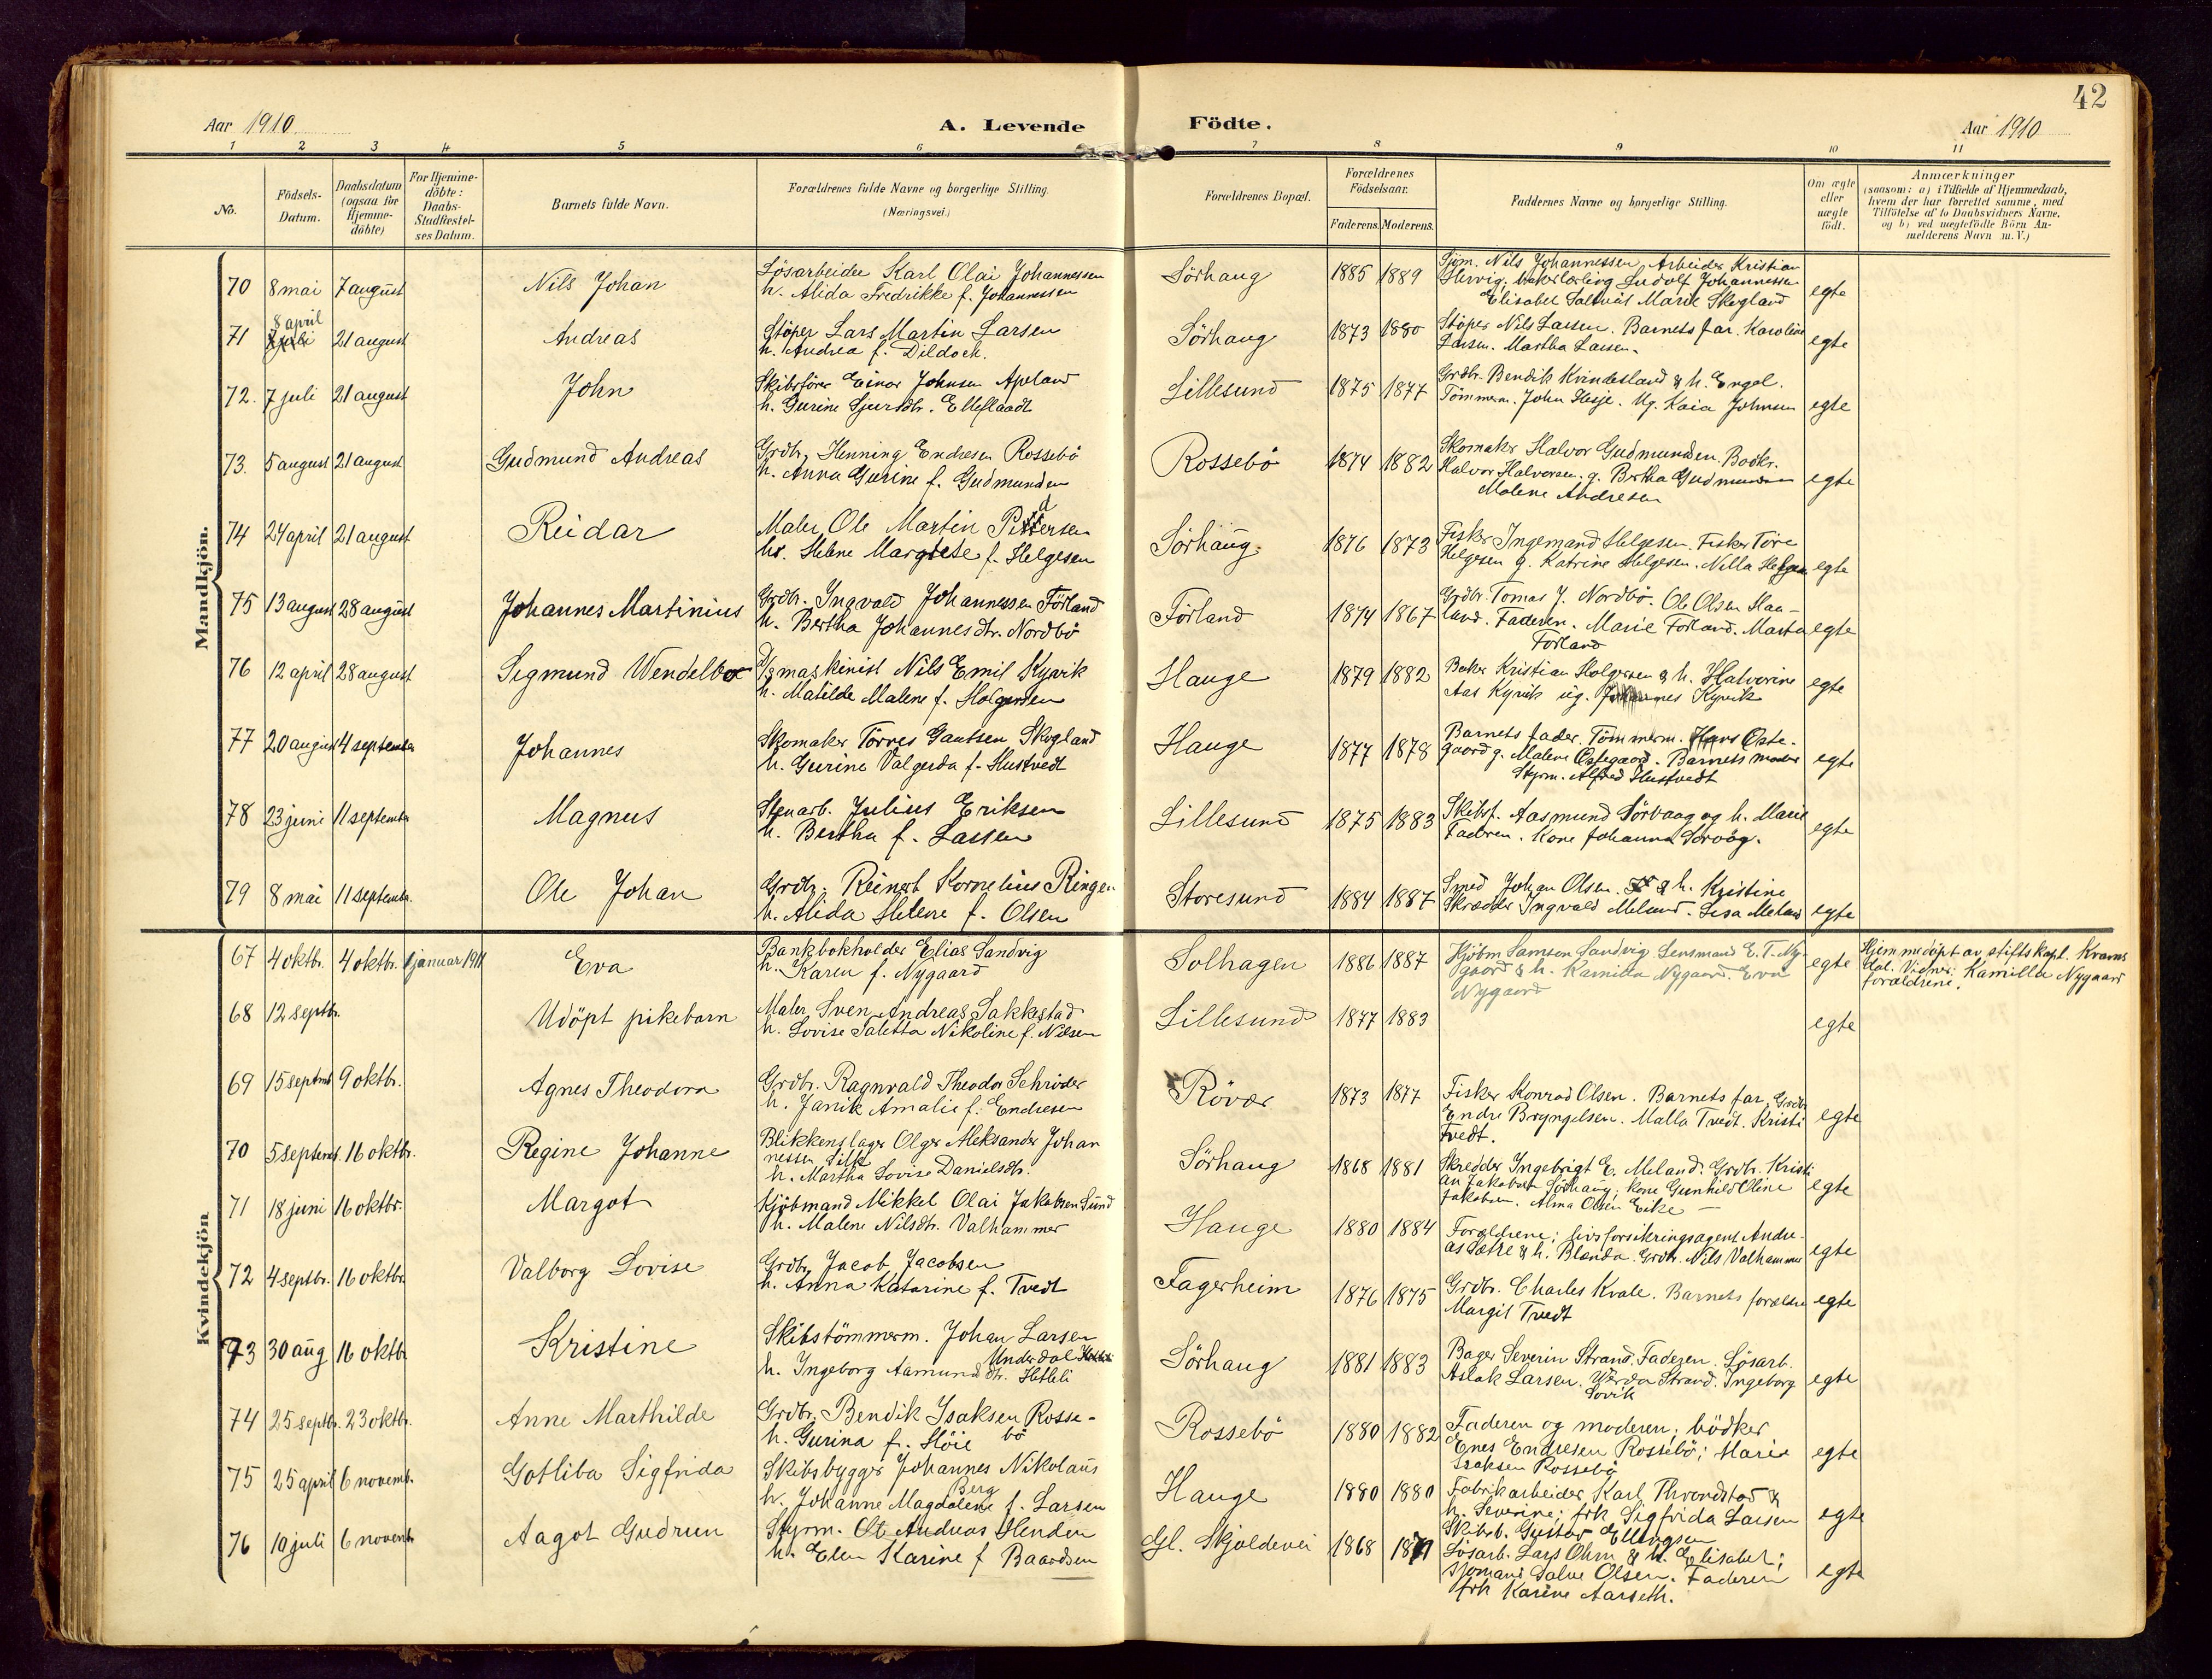 42
Aar 1910
A. Levende
Födte.
Aar 1910
1 2 3 4 5 6 7 8 9 10 11
No.
Födsels-Datum.
Daabsdatum (ogsaa for Hjemme-döbte)
For Hjemme-döbte: Daabs-Stadfæstel-ses Datum.
Barnets fulde Navn.
Forældrenes fulde Navne og borgerlige Stilling.
(Næringsvei.)
Forældrenes Bopæl.
Forældrenes Födselsaar.
Faderens. Moderens.
Faddernes Navne og borgerlige Stilling.
Om ægte eller uægte födt.
Anmærkninger
(saasom: a) i Tilfælde af Hjemmedaab,
hvem der har forrettet samme, med
Tilföielse af to Daabsvidners Navne,
og b) ved uægtefödte Börn An-
melderens Navn m. V.)
Mandkjön.
70 8 mai 7 august Nils Johan
Lösarbeider Karl Olai Johannessen
h. Alida Fredrikke f. Johannessen
Sörhaug 1885 1889
Sjöm. Nils Johannessen, Arbeider Kristian
Ludolf Johannessen
Elisabet Marie Skogland
egte
71 8 april 21 august Andreas
Stöper Lars Martin Larsen
h. Andrea f.
Sörhaug 1873 1880
Stöper Nils Larsen. Barnets far. Karoline
Larsen. Martha Larsen.
egte
72. 7 juli 21 august John
Skibsförer Einar Johnsen Apeland
h. Gurine Sjursdtr.
Lillesund 1875 1877
Grdbr. Bendik Kvindesland & h. Engel.
Tömmerm. John Hesje. Ug. Kaia Johnsen
egte
73. 5 august 21 august Gudmund Andreas
Grdbr. Henning Endresen Rossebö
h. Anna Gurine f. Gudmundsen
Rossebö 1874 1882
Skomaker Halvor Gudmundsen.
Halvor Halvorsen. g. Bertha Gudmundsen
Malene Andresen
egte
74 24 april 21 august Reidar
Maler Ole Martin Pedersen
h. Helene Margrete f. Helgesen
Sörhaug. 1876 1873
Fisker Ingemand Helgesen. Fisker Töre
Helgesen g. Katrine Helgesen. Nilla Helgesen
egte
75 13 august 28 august Johannes Martinius
Grdbr. Ingvald Johannessen Förland
h. Bertha Johannesdtr. Nordbö
Förland 1874 1867
Grdbr. Tomas J. Nordbö. Ole Olsen Haa-
land. Faderen. Marie Förland. Marta
Förland
egte
76 12 april 28 august Sigmund Wendelboe
D/S maskinist Nils Emil Kyvik
h. Matilde Malene f. Holgersen
Hauge 1879 1882
Baker Kristian Holgersen & h. Halvorine
Aas Kyvik ug. Johannes Kyvik
egte
77 20 august 4 september Johannes
Skomaker Törres Gautsen Skogland
h. Gurine Valgerda f. Hustvedt
Hauge 1877 1878
Barnets fader. Tömmerm. Hans Öste-
gaard g. Malene Östegaard. Barnets moder
Styrm. Alfred Hustvedt
egte
78 23 juni 11 september Magnus
Stenarb. Julius Eriksen
h. Bertha f. Larsen
Lillesund 1875 1883
Skibsf. Aasmund Sörvaag og h. Marie
Faderen. Kone Johanna Sörvåg.
egte
79 8 mai 11 septembr. Ole Johan
Grdbr. Reinert Kornelius Ringen
h. Alida Helene f. Olsen
Storesund 1884 1887
Smed Johan Olsen. & h. Kristine
Skrædder Ingvald Meland. Lisa Meland
egte
Kvindekjön
67 4 oktbr. 4 oktbr. 1 januar 1911 Eva
Bankbokholder Elias Sandvig
h. Karen f. Nygaard
Solhagen 1886 1887
Kjöbm Samson Sandvig Lensmand E. T. Ny-
gaard & h. Kamilla Nygaard. Eva
Nygaard
egte
Hjemmedöpt av stiftskapl. Kvarme
Vidner: Kamilla Nygaard
forældrene.
68 12 septbr. Udöpt pikebarn
Maler Sven Andreas Sakkestad
h. Lovise Taletta Nikoline f. Nilsen
Lillesund 1877 1883
egte
69 15 septmb. 9 oktbr. Agnes Theodora
Grdbr. Ragnvald Theodor Schröder
h. Janik Amalie f. Endresen
Rövær 1873 1877
Fisker Konrad Olsen. Barnets far, Grdbr
Endre Bryngelsen. Malla Tvedt. Kristi
Tvedt.
egte
70 5 septemb. 16 oktbr. Regine Johanne
Blikkenslager Olger Aleksander Johan
nessen
h. Martha Lovise Danielsdtr.
Sörhaug 1868 1881
Skredder Ingebrigt E. Meland. Grdbr. Kristi
an Jakobsen Sörhaug; kone Gunhild Oline
Jakobsen. Alma Olsen Eike —
egte
71 18 juni 16 oktbr. Margot
Kjöbmand Mikkel Olai Jakobsen Sund
h. Malene Nilsdtr. Valhammer
Hauge 1880 1884
Forældrene; livsforsikringsagent Andre-
as Sætre & h. Blenda. Grdbr. Nils Valhammer
egte
72 4 septbr. 16 oktbr. Valborg Lovise
Grdbr. Jacob Jacobsen
h. Anna Katarine f. Tvedt
Fagerheim 1876 1875
Grdbr. Charles Kvale. Barnets forældre
Margit Tvedt
egte
73 30 aug 16 oktbr. Kristine
Skibstömmerm. Johan Larsen
Underdal
h. Ingeborg Aamundsdtr. Hetleli
Sörhaug 1881 1883
Bager Severin Strand. Faderen. Lösarb.
Aslak Larsen. Strand. Ingeborg
Lovik
egte
74 25 septbr. 23 oktbr. Anne Marthilde
Grdbr. Bendik Isaksen Rosse-
bö
h. Gurina f. Höie
Rossebö 1880 1882
Faderen og moderen; bödker
Enes Endresen Rossebö; Marie
Isaksen Rossebö
egte
75 25 april 6 novemb. Gotliba Sigfrida
Skibsbygger Johannes Nikolaus
Berg
h. Johanne Magdalene f. Larsen
Hauge 1880 1880
Fabrikarbeider Karl Throndstad &
h. Severine; frk Sigfrida Larsen
Skibsb. Gustav Ellingsen
egte
76 10 juli 6 novemb. Aagot Gudrun
Styrm. Ole Andreas Henden
h. Elen Karine f Baardsen
Gl. Skjoldevei 1868 1871
Lösarb. Lars Ohm & h. Elisabet;
sjömand Salve Olsen. Faderen
frk Karine Aarseth.
egte